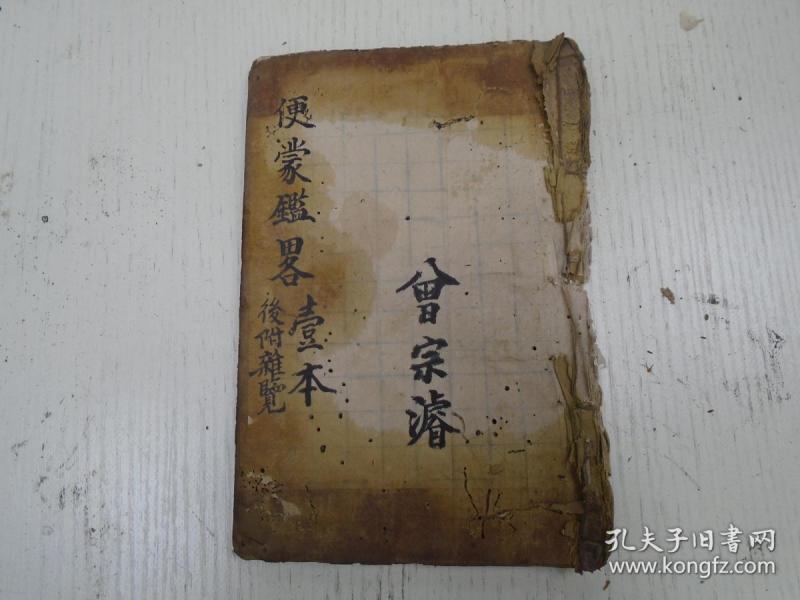 曾宗濬
便蒙鑑畧壹本
後附雜覽
孔夫子旧书网
www.kongfz.com